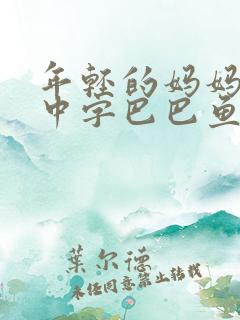 年轻的妈妈
中字巴巴鱼
葉尔德
未经同意禁止转载